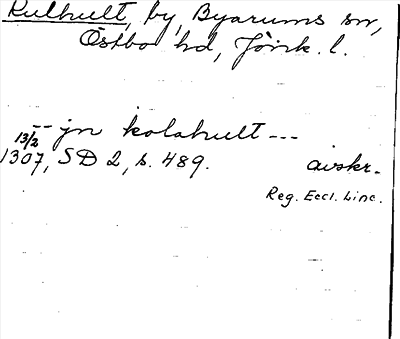 Kulhult, by, Byarums sn,
Östbo hd, Jönk. l.
-- jn kolahult ---
13/2
1307, SD 2, s. 489. avskr.
Reg. Eccl. Linc.